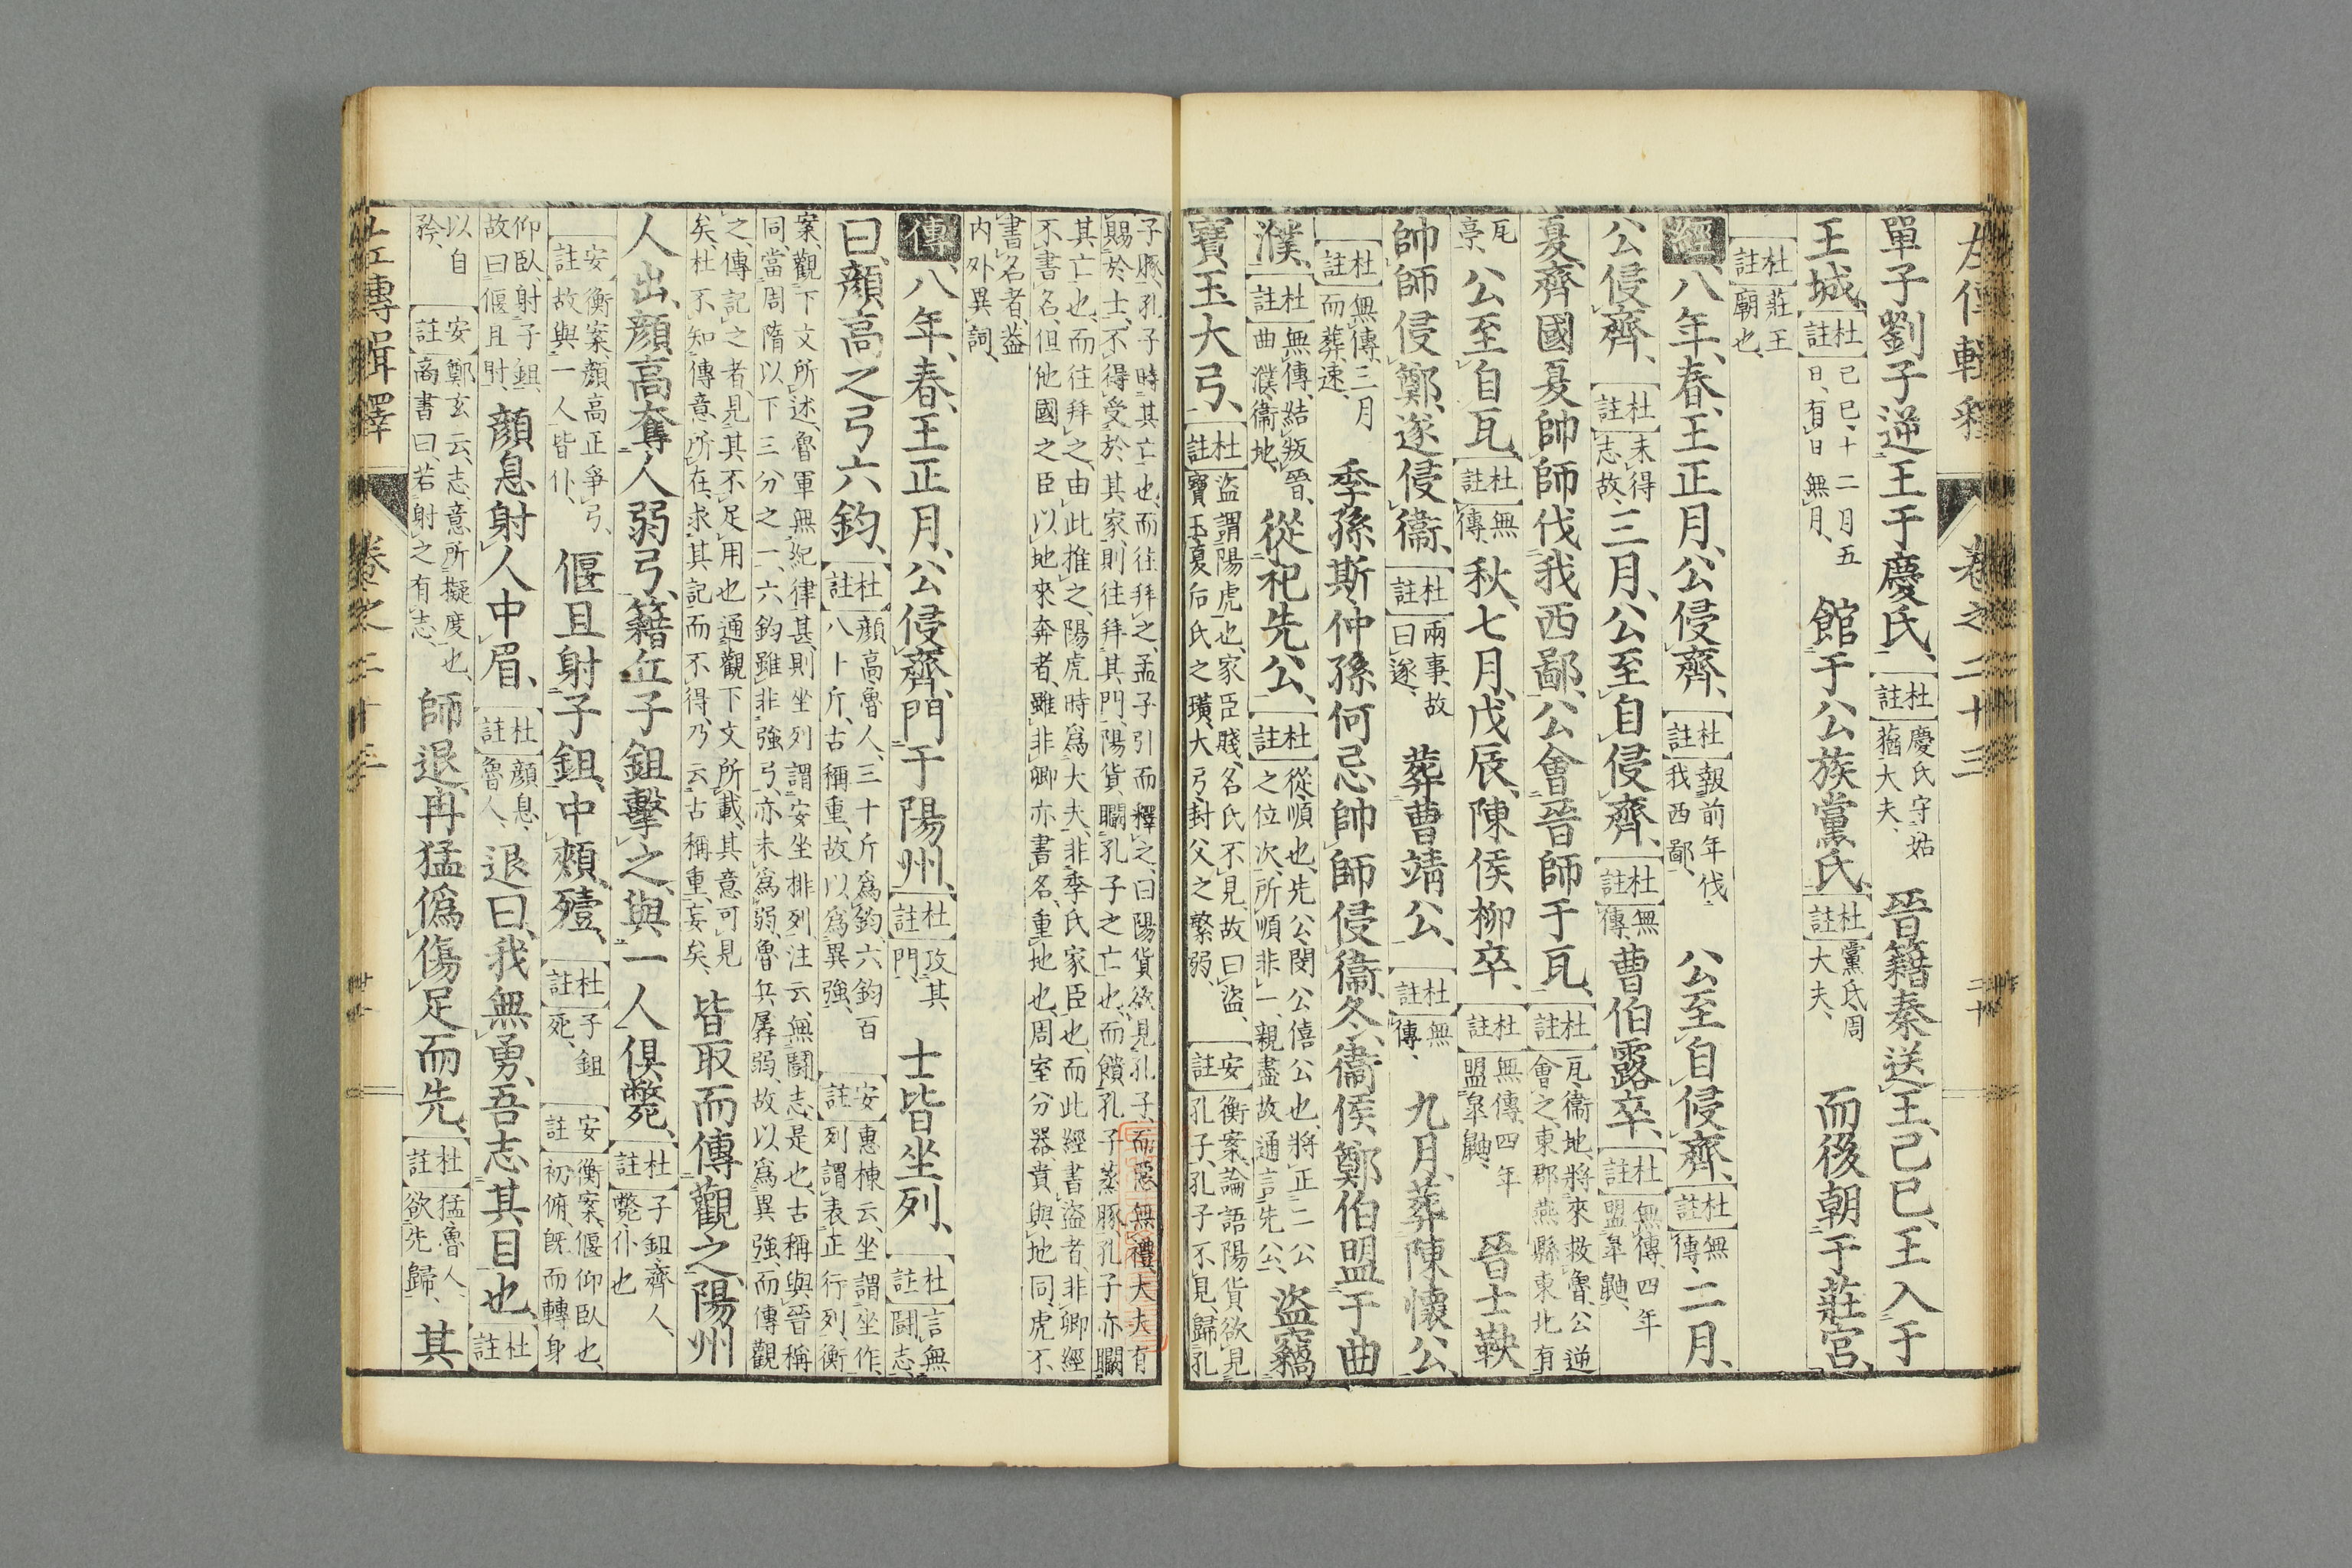 左傳輯釋 卷之二十三
單子劉子逆王于慶氏、杜註慶氏守姑蕕大夫、晉籍秦送王、己巳、王入于
王城、杜註己巳、十二月五日、有日無月、館于公族黨氏、杜註黨氏、周大夫、而後朝于莊宮、
杜註莊王廟也、
經八年、春、王正月、公侵齊、杜註報前年伐我西鄙、公至自侵齊、杜註無傳、二月、
公侵齊、杜註未得志故、三月、公至自侵齊、杜註無傳、曹伯露卒、杜註無傳、四年盟臯鼬、
夏、齊國夏帥師伐我西鄙、公會晉師于瓦、杜註瓦、衞地、將來救魯、公逆會之、東郡燕縣東北有
瓦亭、公至自瓦、杜註無傳、秋、七月、戊辰、陳侯柳卒、杜註無傳、四年盟臯鼬、晉士鞅
帥師侵鄭、遂侵衞、杜註兩事、故曰遂、葬曹靖公、杜註無傳、九月、葬陳懷公、
杜註無傳、三月而葬、速、季孫斯仲孫何忌帥師侵衞、冬、衞侯鄭伯盟于曲
濮、杜註無傳、結叛晉、曲濮、衞地、從祀先公、杜註從、順也、先公、閔公僖公也、將正二公之位次、所順非一、親盡故通言先公、盜竊
寶玉大弓、杜註盜謂陽虎也、家臣賤、名氏不見、故曰盜、寶玉、夏后氏之璜、大弓、封父之繁弱、安註衡案、論語陽貨欲見孔子、孔子不見、歸孔
子豚、孔子時其亡也、而往拜之、孟子引而釋之、曰陽貨欲見孔子、而惡無禮、大夫有賜於士、不得受於其家、則往拜其門、陽貨、矙孔子之亡也、而饋孔子蒸豚、孔子亦矙
其亡也、而往拜之、由此推之、陽虎時爲大夫、非季氏家臣也、而此經書盜者、非卿經不書名、但他國之臣以地來奔者、雖非卿亦書名、重地也、周室分器、貴與地同、虎不
書名者、蓋內外異詞、
傳八年、春、王正月、公侵齊、門于陽州、杜註攻其門、士皆坐列、杜註言無鬪志、
曰、顏高之弓六鈞、杜註顏高、魯人、三十斤爲鈞、六鈞百八十斤、古稱重、故以爲異強、安註惠棟云、坐謂坐作、列謂表正行列、衡
案、觀下文所述、魯軍無紀律甚、則坐列謂安坐排列、注云無鬪志、是也、古稱與晉稱同、當周隋以下三分之一、六鈞雖非強弓、亦未爲弱、魯兵孱弱、故以爲異強、而傳觀
之、傳記之者、見其不足用也、通觀下文所載、其意可見矣、杜不知傳意所在、求其記而不得、乃云古稱重、妄矣、皆取而傳觀之、陽州
人出、顏高奪人弱弓、籍丘子鉏擊之、與一人俱斃、杜註子鉏、齊人、斃、仆也
安註衡案、顏高正爭弓、故與一人皆仆、偃且射子鉏、中頰、殪、杜註子鉏死、安註衡案、偃、仰臥也、初俯、旣而轉身
仰臥射子鉏、故曰偃且射、顏息射人中眉、杜註顏息、魯人、退曰、我無勇、吾志其目也、杜註
以自矜、安註鄭玄云、志、意所擬度也、商書曰、若射之有志、師退、冉猛僞傷足而先、杜註猛、魯人、欲先歸、其
左傳輯釋 卷之二十三